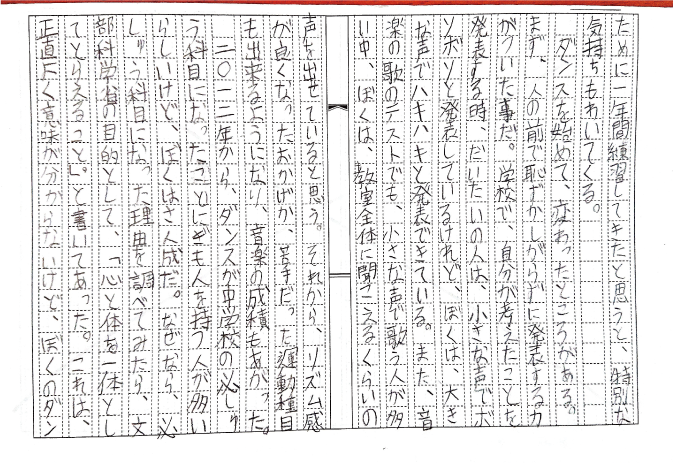 ために一年間練習してきたと思うと、特別な
気持ちもわいてくる。
ダンスを始めて、変わったところがある。
まず、人の前で恥ずかしがらずに発表する力
がついた事だ。学校で、自分が考えたことを
発表する時、だいたいの人は、小さな声でボ
ソボソと発表しているけれど、ぼくは、大き
な声でハキハキと発表できている。また、音
楽の歌のテストでも、小さな声で歌う人が多
い中、ぼくは、教室全体に聞こえるくらいの
声を出せていると思う。それから、リズム感
が良くなったおかげか、苦手だった運動種目
も出来るようになり、音楽の成績もあがった。
二〇一二年から、ダンスが中学校の必しゅ
う科目になったことにぎも人を持つ人が多い
らしいけど、ぼくはさん成だ。なぜなら、必
しゅう科目になった理由を調べてみたら、文
部科学省の目的として、「心と体を一体とし
てとらえること」。と書いてあった。これは、
正直よく意味が分からないけど、ぼくのダン